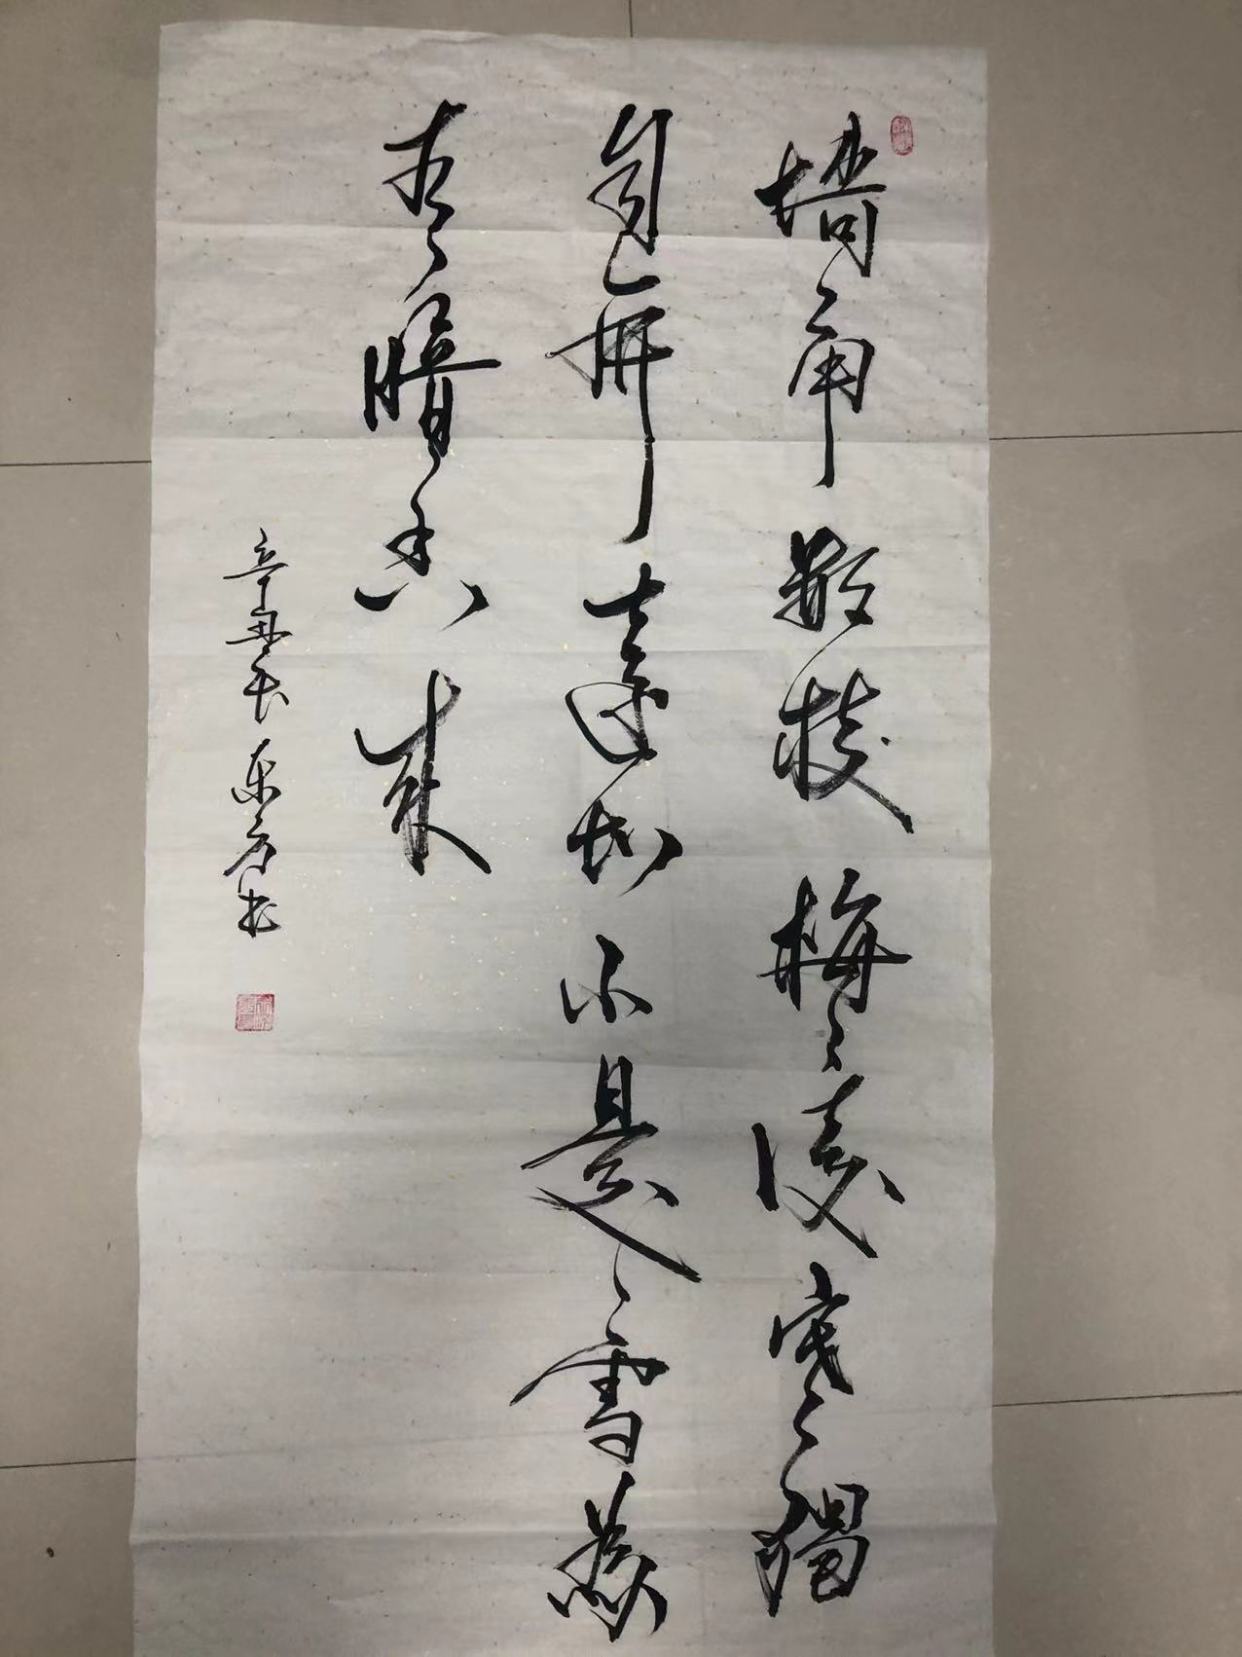 墙角数枝梅凌寒独
自开遥知不是雪为
有暗香来
辛丑 东方书